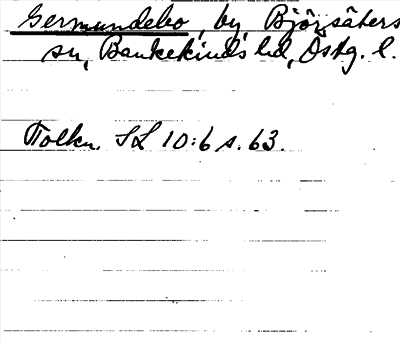 Germundebo, by, Björsäters
sn, Bankekinds hd, Östg. l.
Tolkn. SL 10:6 s. 63.